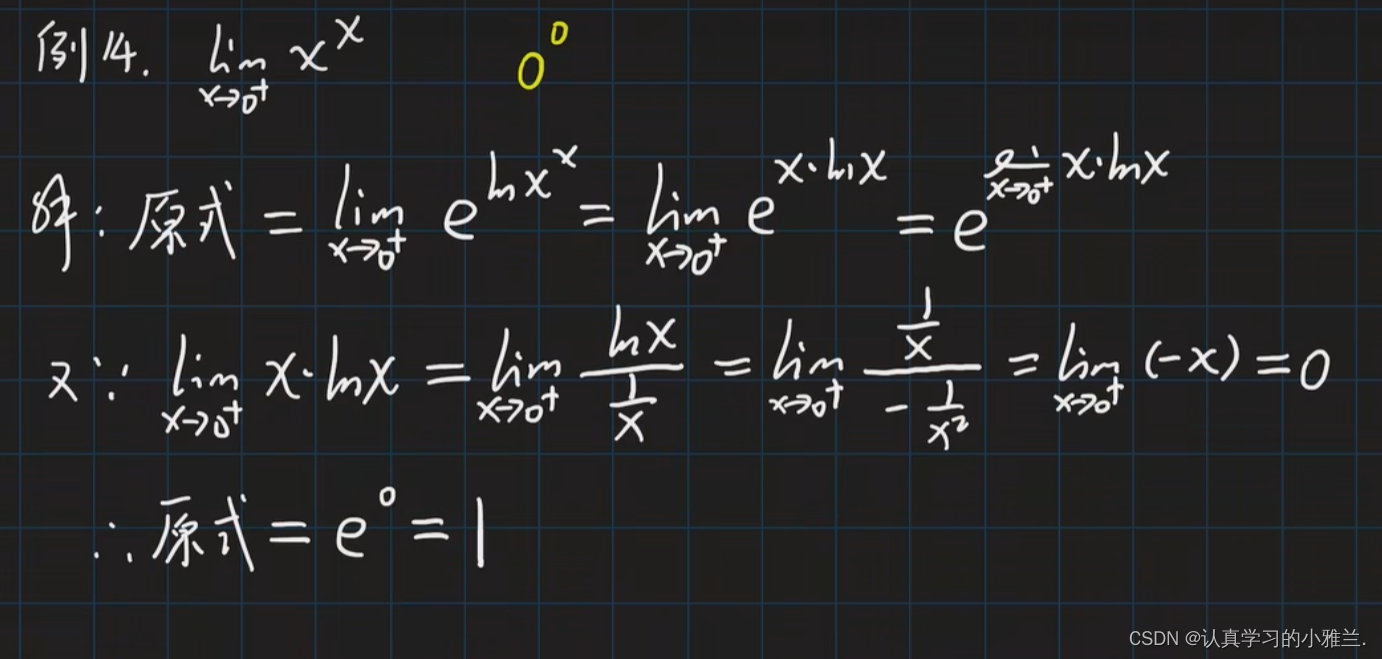 例14. lim_{x→0⁺} x^x 0^0
解: 原式 = lim_{x→0⁺} e^{lnx^x} = lim_{x→0⁺} e^{x·lnx} = e^{lim_{x→0⁺} x·lnx}
又∵ lim_{x→0⁺} x·lnx = lim_{x→0⁺} \frac{lnx}{\frac{1}{x}} = lim_{x→0⁺} \frac{\frac{1}{x}}{-\frac{1}{x²}} = lim_{x→0⁺} (-x) = 0
∴原式 = e^0 = 1
CSDN @认真学习的小雅兰.